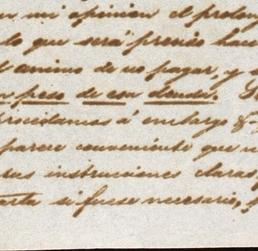 en mi opinion el prolong
lo que será preciso hace
el camino de no pagar, y e
un peso de esa deuda.
procedamos á embargo
parece conveniente que u
sus instrucciones claras,
esta si fuese necesario,